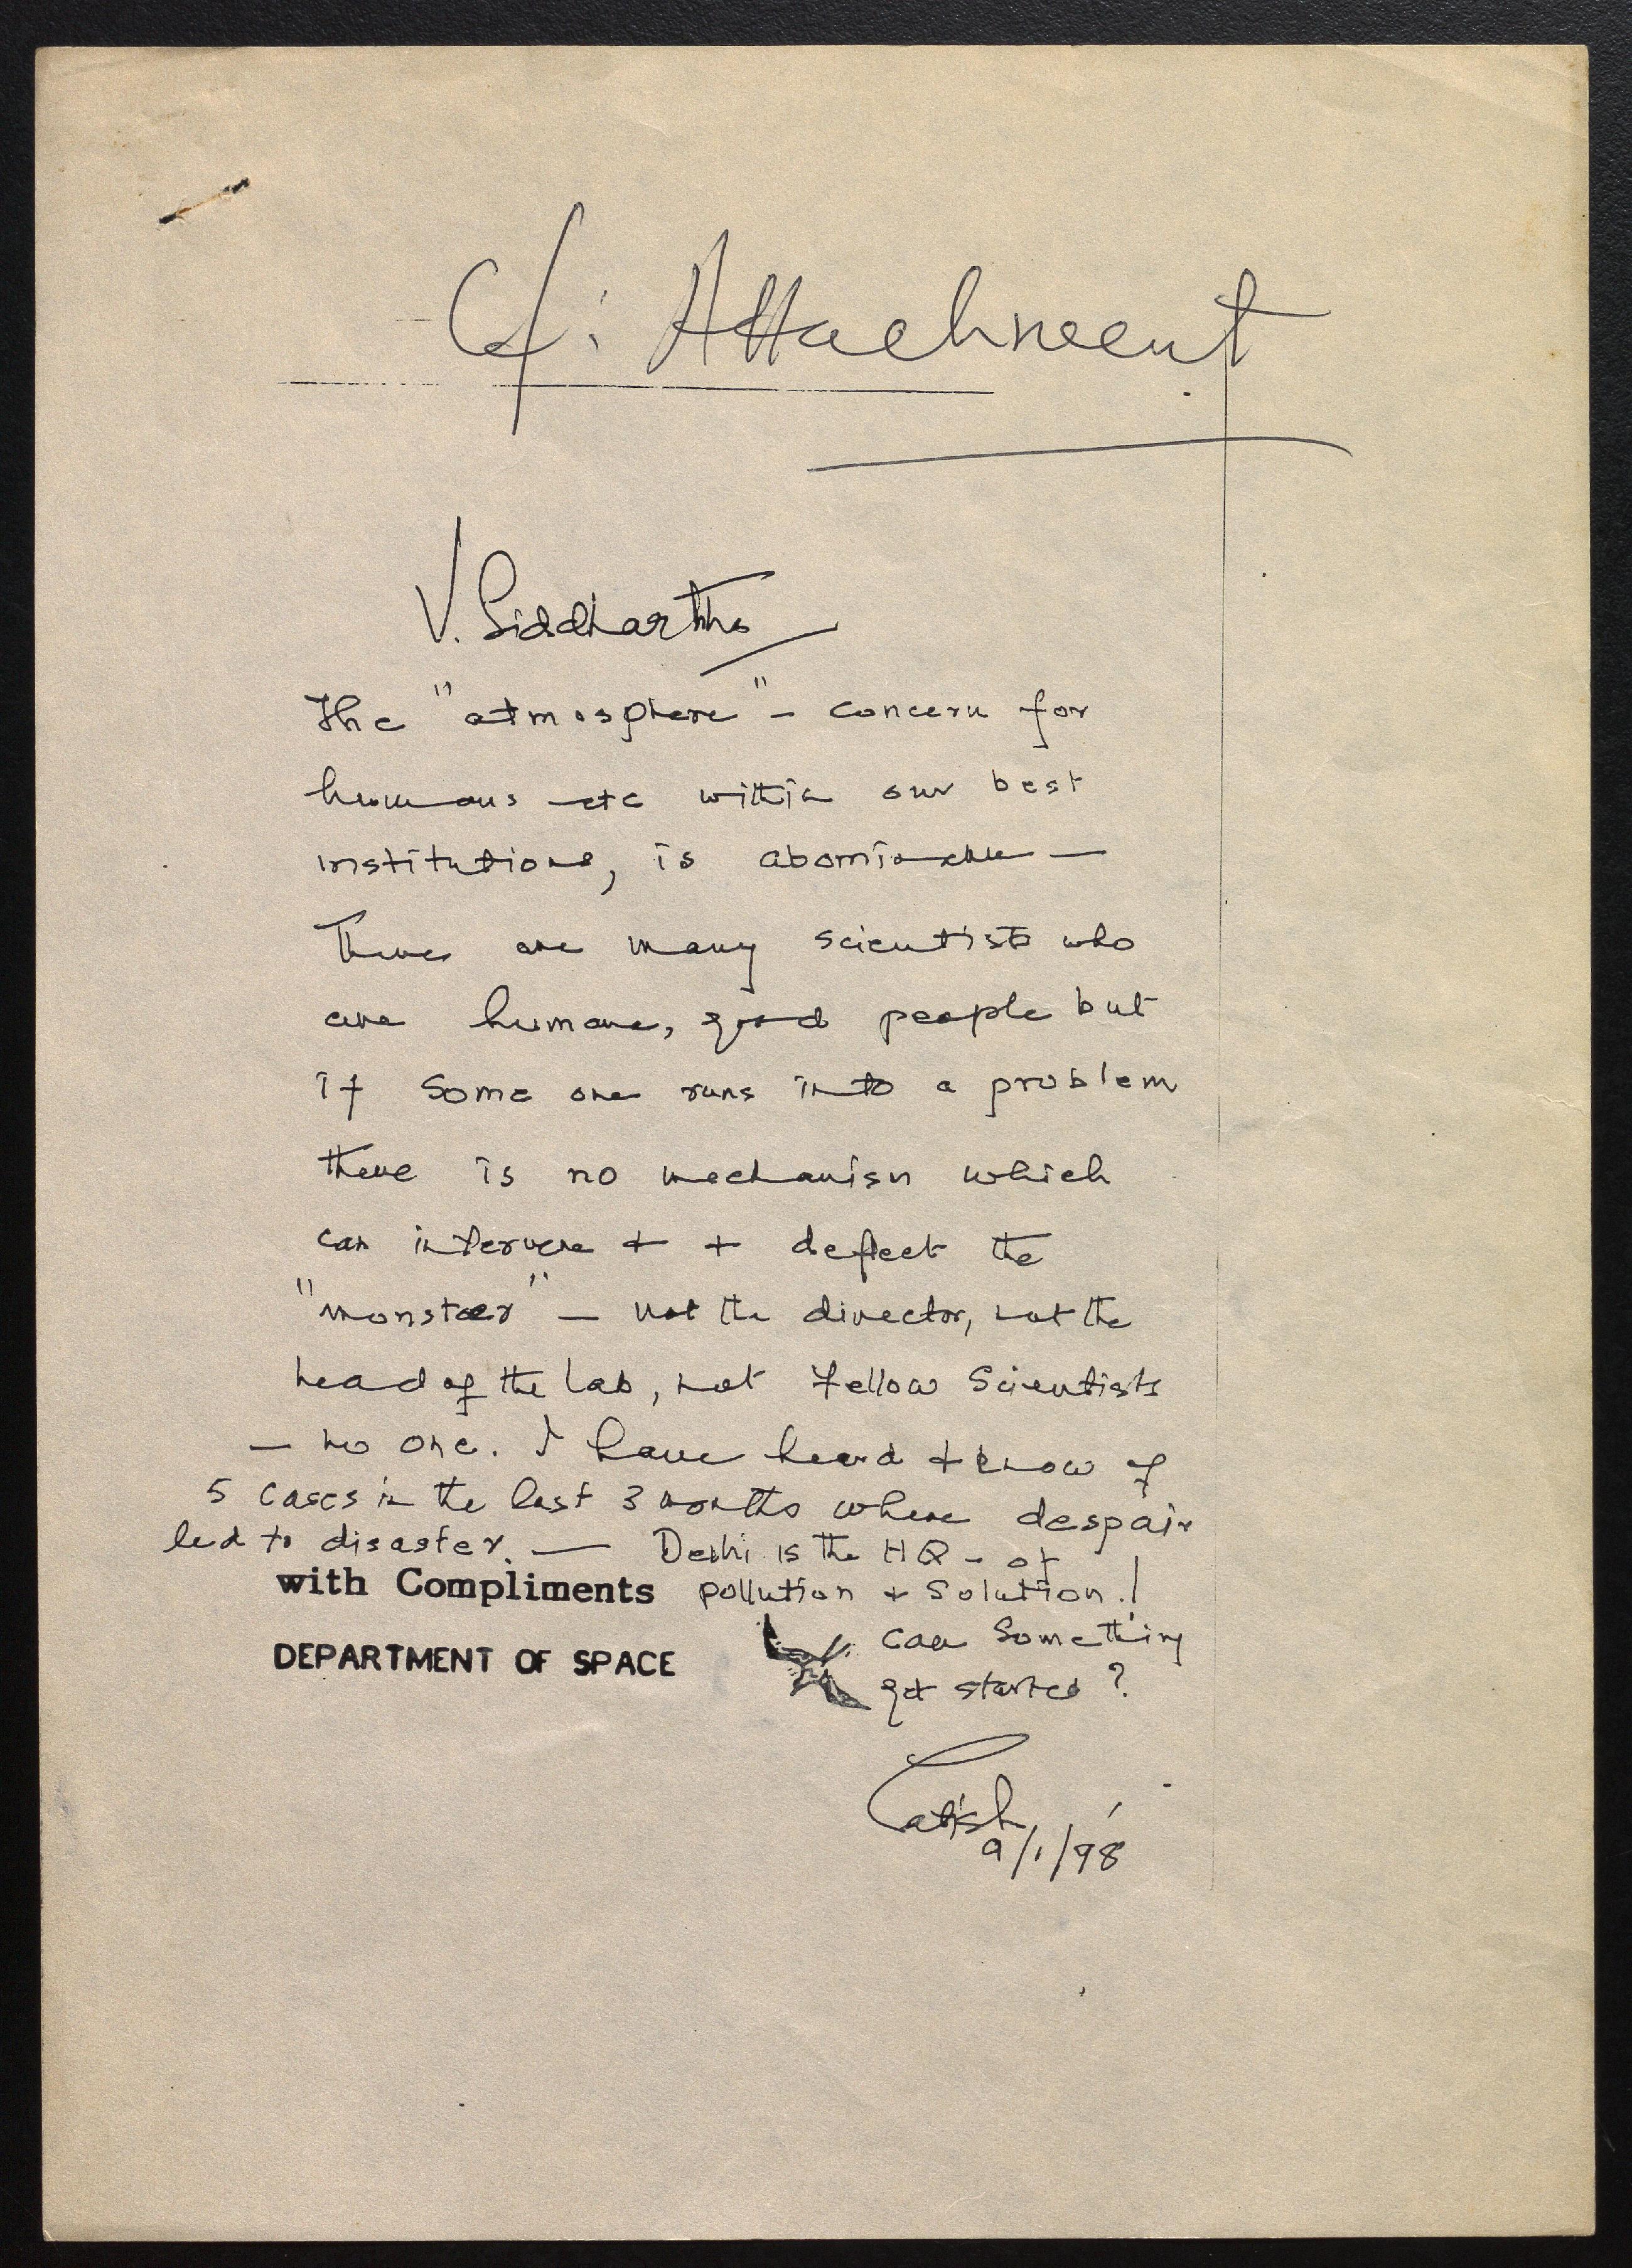 Cf: Attachment
V. Siddhartha
The "atmosphere" - concern for
humans etc within our best
institutions, is abominable —
There are many scientists who
are humane, good people but
if some one runs into a problem
there is no mechanism which
can intervene + + deflect the
"monster" — not the director, not the
head of the lab, not fellow Scientists
— no one. I have heard + know of
5 cases in the last 3 months where despair
led to disaster. — Delhi is the HQ - of
with Compliments pollution + solution.!
can something
DEPARTMENT OF SPACE
get started ?
Satish
9/1/98